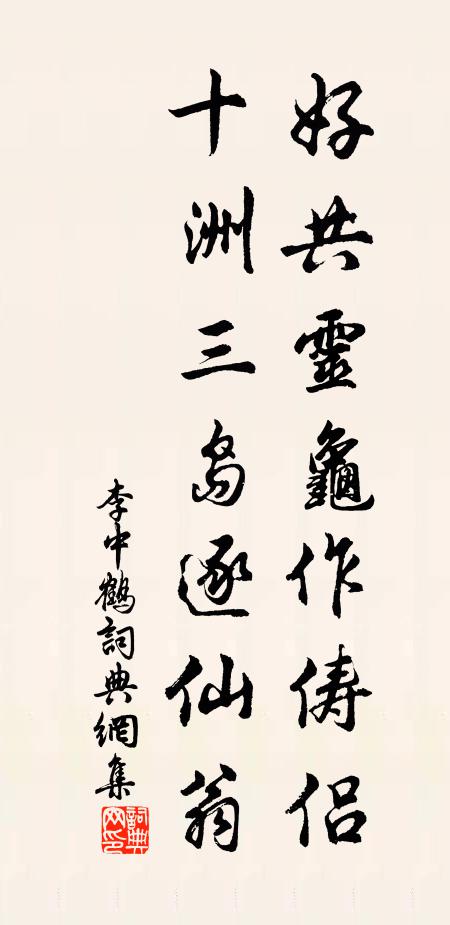 好共靈龜作俦侣
十洲三岛逐仙翁
李中鹤詞典網集
詞典網印